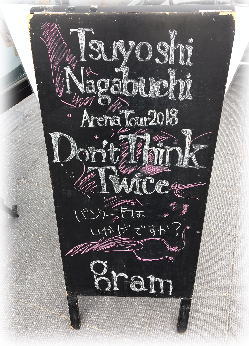 Tsuyoshi
Nagabuchi
Arena Tour 2018
Don't Think
Twice
パンケーキは
いかがですか?
gram